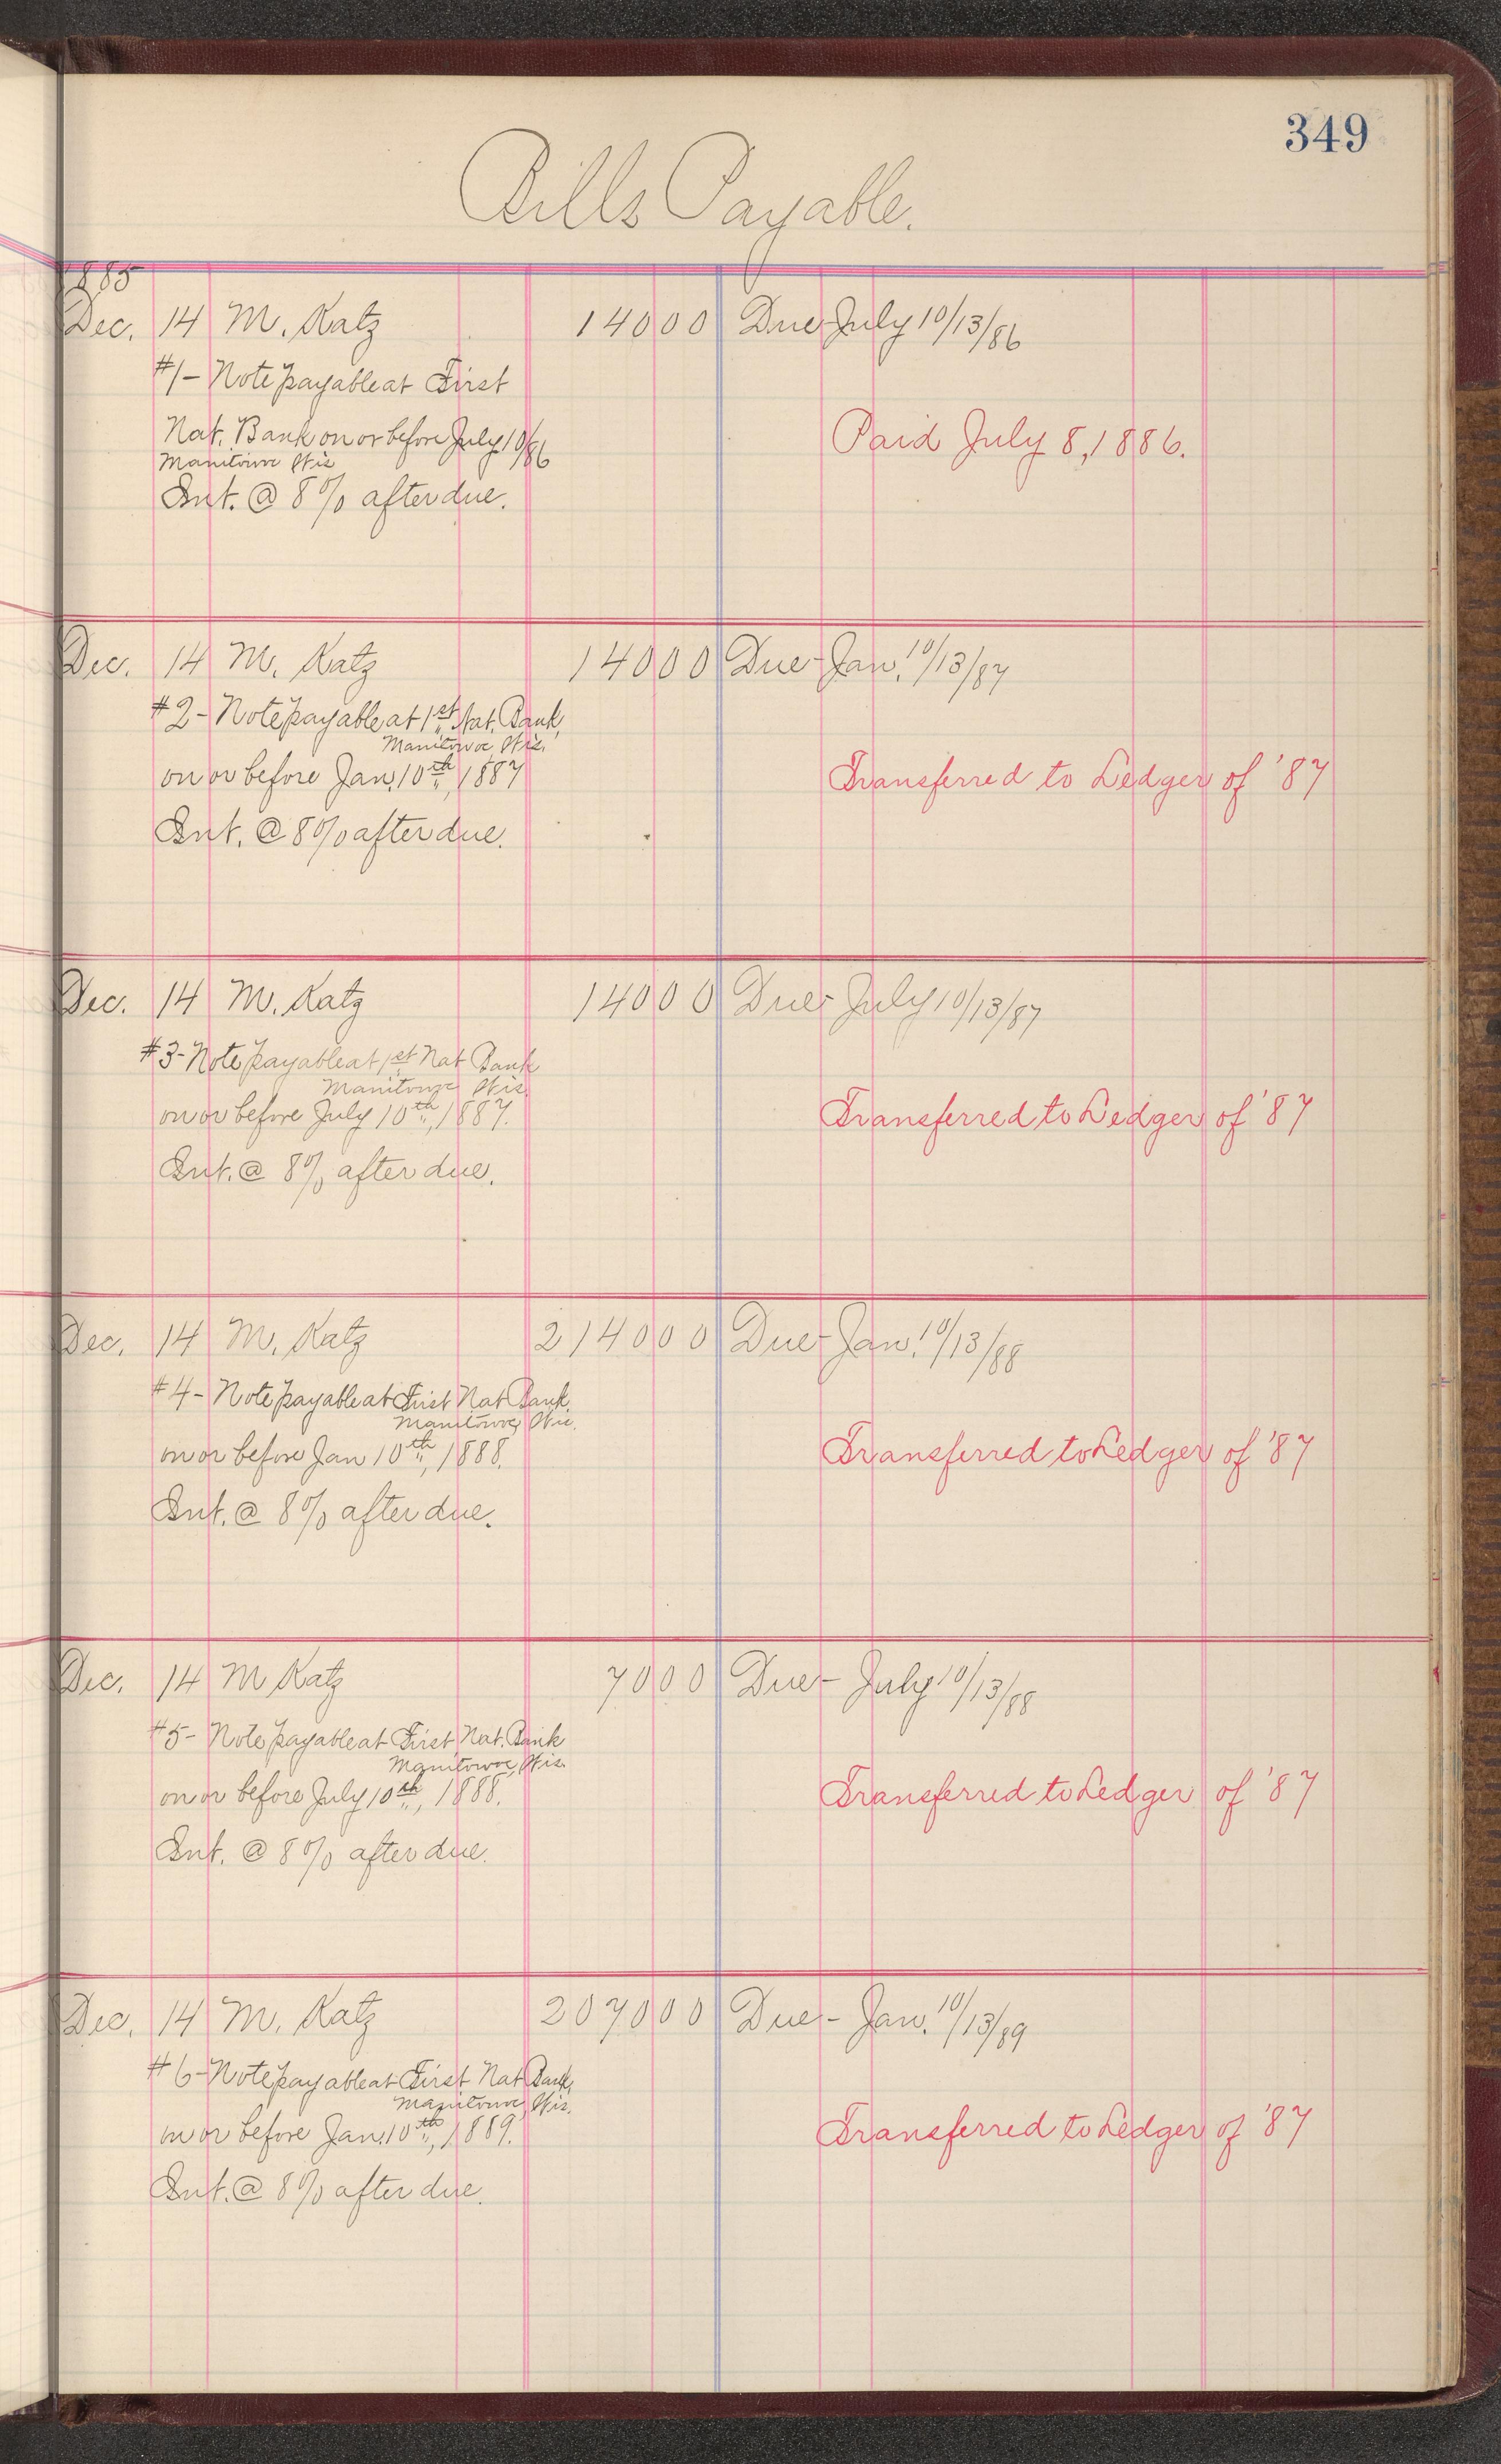 349
Bills Payable.
1885
Dec. 14 M. Katz 140 00 Due July 10/13/86
#1- Note payable at First
Nat. Bank on or before July 10/86
Manitowoc Wis
Int. @ 8% after due.
Paid July 8, 1886.
Dec. 14 M. Katz 140 00 Due - Jan. 10/13/87
#2- Note payable at 1st Nat. Bank,
Manitowoc, Wis.
on or before Jan. 10th, 1887
Int. @ 8% after due.
Transferred to Ledger of '87
Dec. 14 M. Katz 140 00 Due - July 10/13/87
#3- Note payable at 1st Nat Bank
Manitowoc Wis.
on or before July 10th, 1887.
Int. @ 8% after due.
Transferred to Ledger of '87
Dec. 14 M. Katz 2140 00 Due - Jan. 10/13/88
#4- Note payable at First Nat Bank,
Manitowoc, Wis.
on or before Jan 10th, 1888.
Int. @ 8% after due.
Transferred to Ledger of '87
Dec. 14 M Katz 70 00 Due - July 10/13/88
#5- Note payable at First Nat. Bank
Manitowoc, Wis.
on or before July 10th, 1888.
Int. @ 8% after due.
Transferred to Ledger of '87
Dec. 14 M. Katz 2070 00 Due - Jan. 10/13/89
#6- Note payable at First Nat Bank,
Manitowoc, Wis.
on or before Jan. 10th, 1889.
Int. @ 8% after due.
Transferred to Ledger of '87